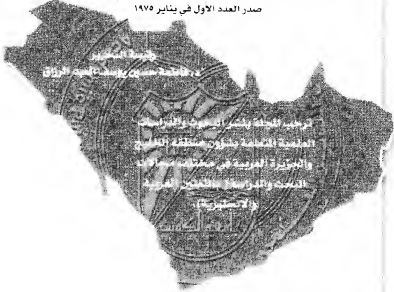 صدر العدد الأول في يناير ١٩٧٥
رئيسة التحرير
د. فاطمة حسين يوسف العبد الرزاق
ترحب المجلة بنشر البحوث والدراسات
العلمية المتعلقة بشؤون منطقة الخليج
والجزيرة العربية في مختلف مجالات
البحث والدراسة باللغتين العربية
والانجليزية).